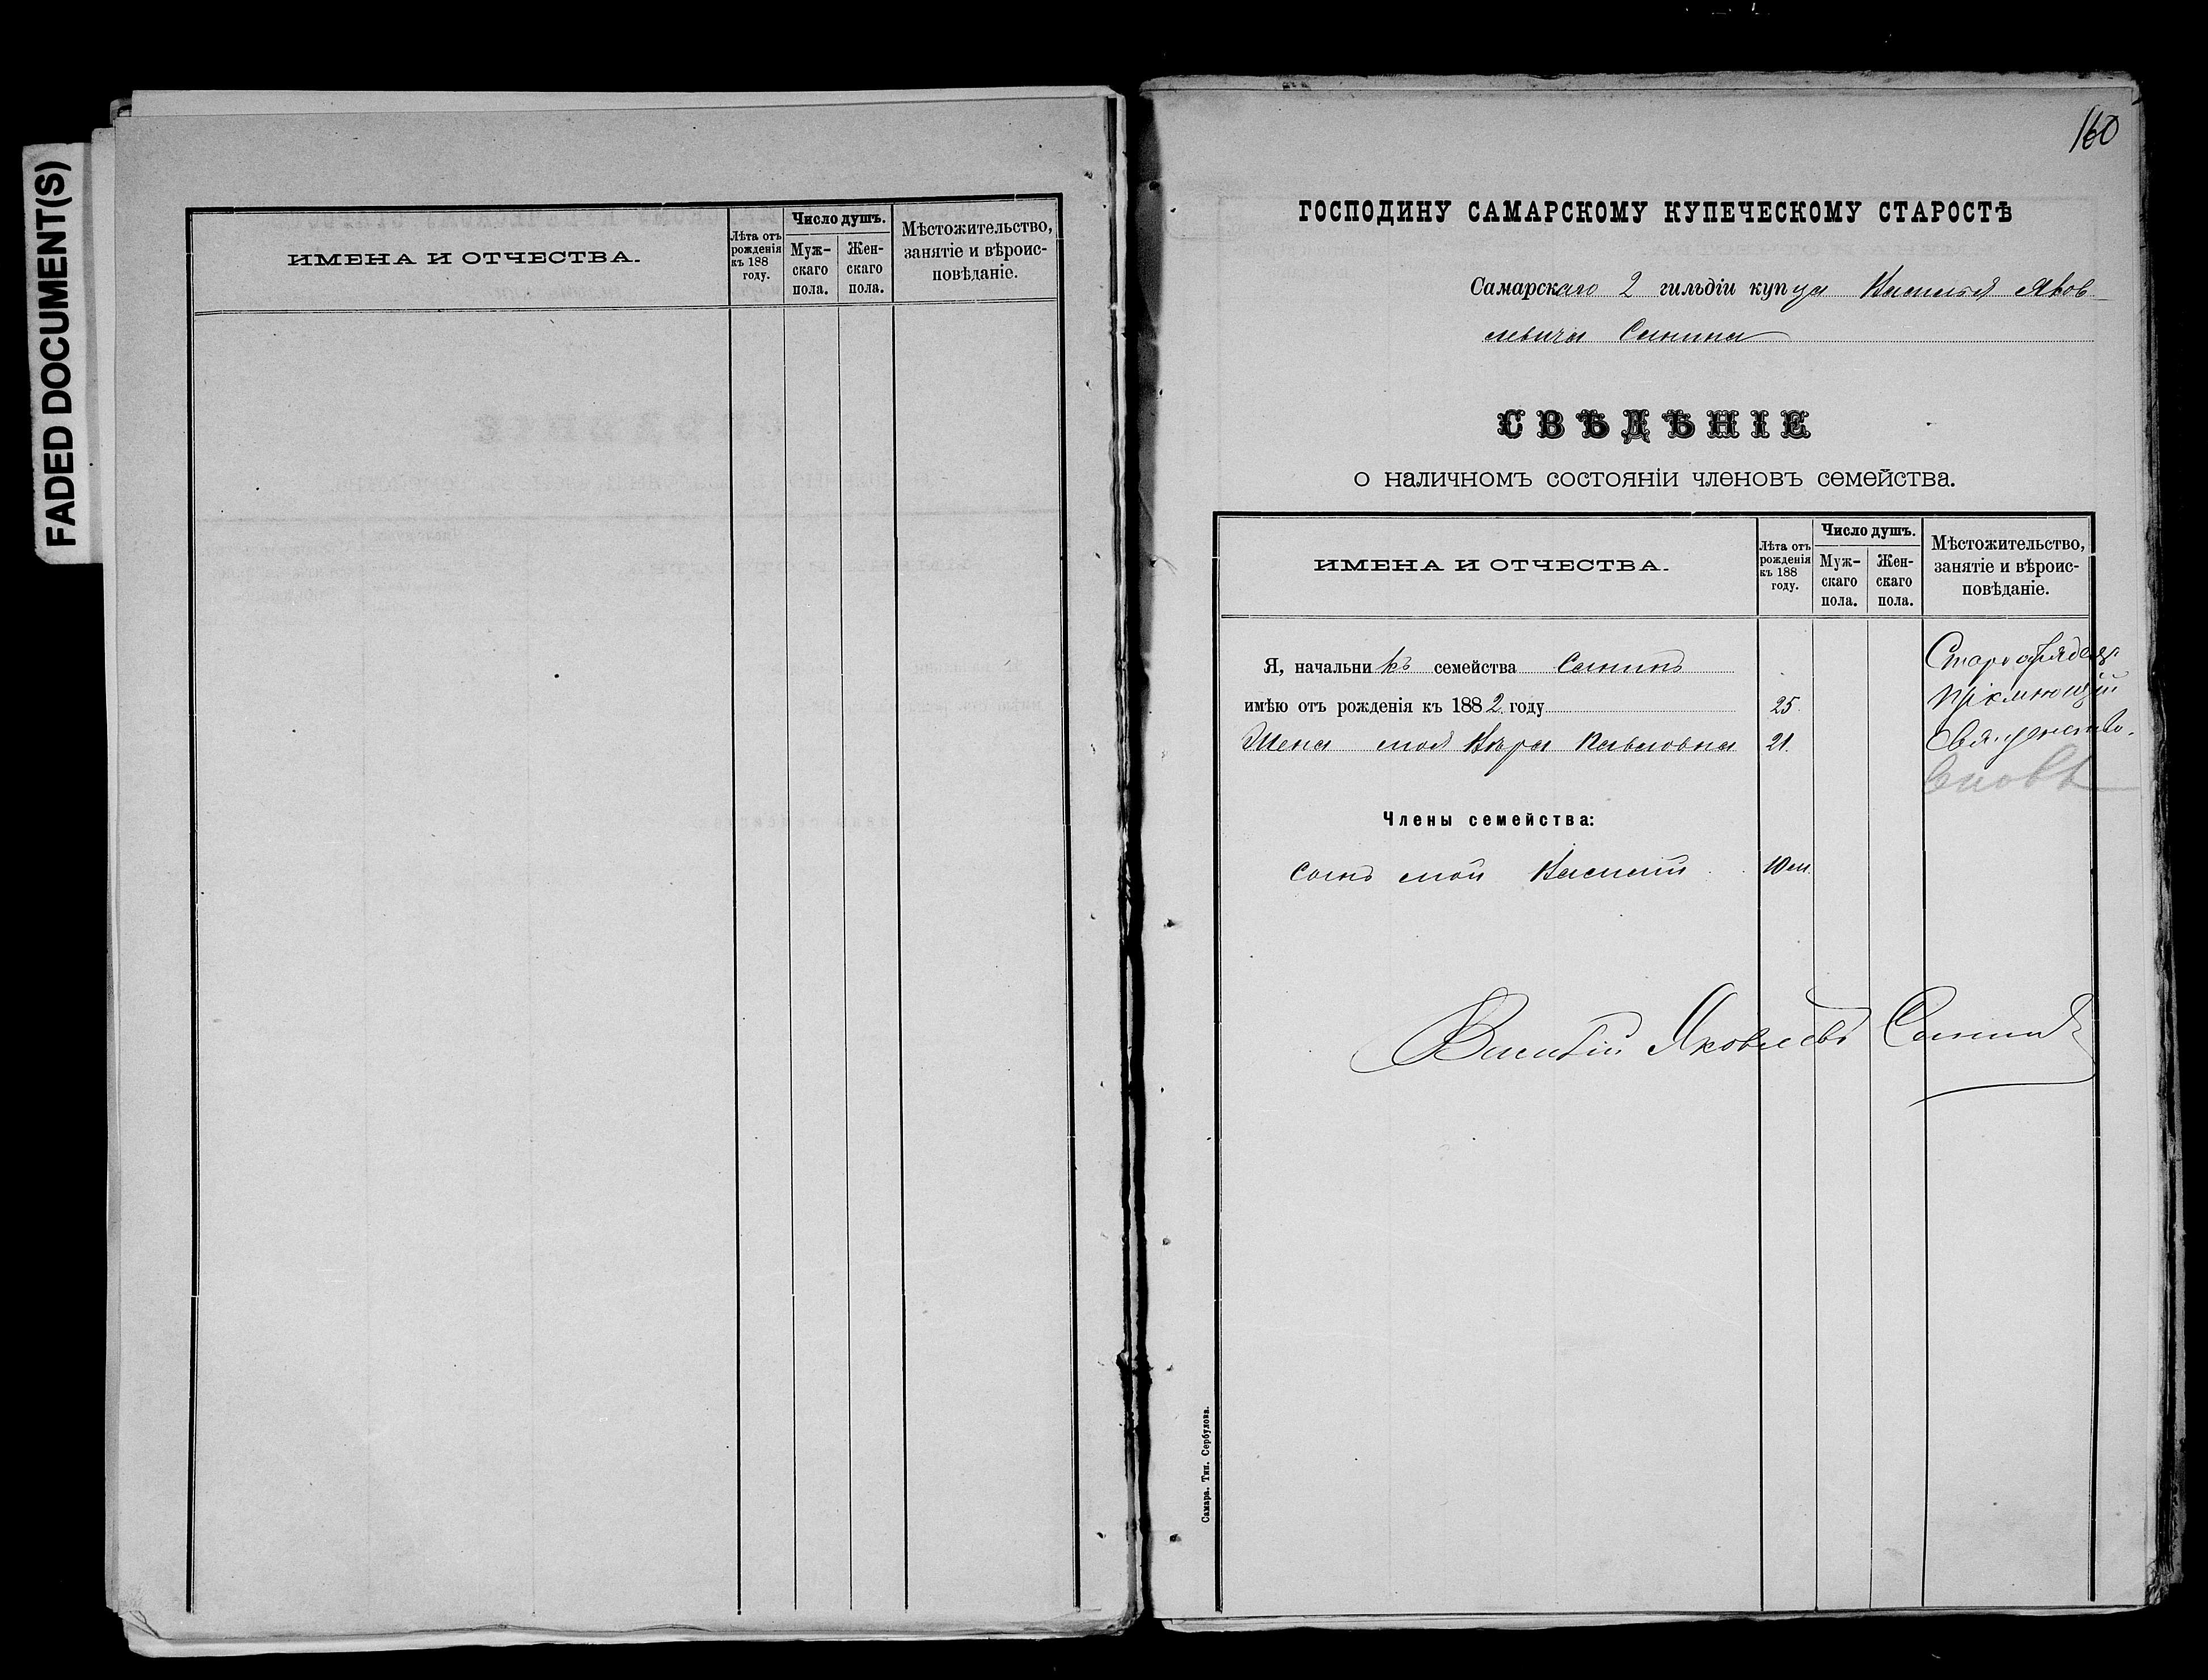 FADED DOCUMENT(S)
ИМЕНА И ОТЧЕСТВА.
Лѣта отъ рожденія къ 188 году.
Число душъ.
Мужскаго пола.
Женскаго пола.
Мѣстожительство, занятіе и вѣроисповѣданіе.
160
ГОСПОДИНУ САМАРСКОМУ КУПЕЧЕСКОМУ СТАРОСТѢ
Самарскаго 2 гильдіи купца Василья Яков-
левича Санина
СВѢДѢНІЕ
о наличномъ состояніи членовъ семейства.
ИМЕНА И ОТЧЕСТВА.
Лѣта отъ рожденія къ 188 году.
Число душъ.
Мужскаго пола.
Женскаго пола.
Мѣстожительство, занятіе и вѣроисповѣданіе.
Я, начальникъ семейства Санинъ
имѣю отъ рожденія къ 1882 году 25.
Жена моя Вѣра Павловна 21.
пріемлющій
Священство.
Члены семейства:
сынъ мой Василій 10 м.
Василій Яковлевъ Санинъ
Самара. Тип. Сербулова.